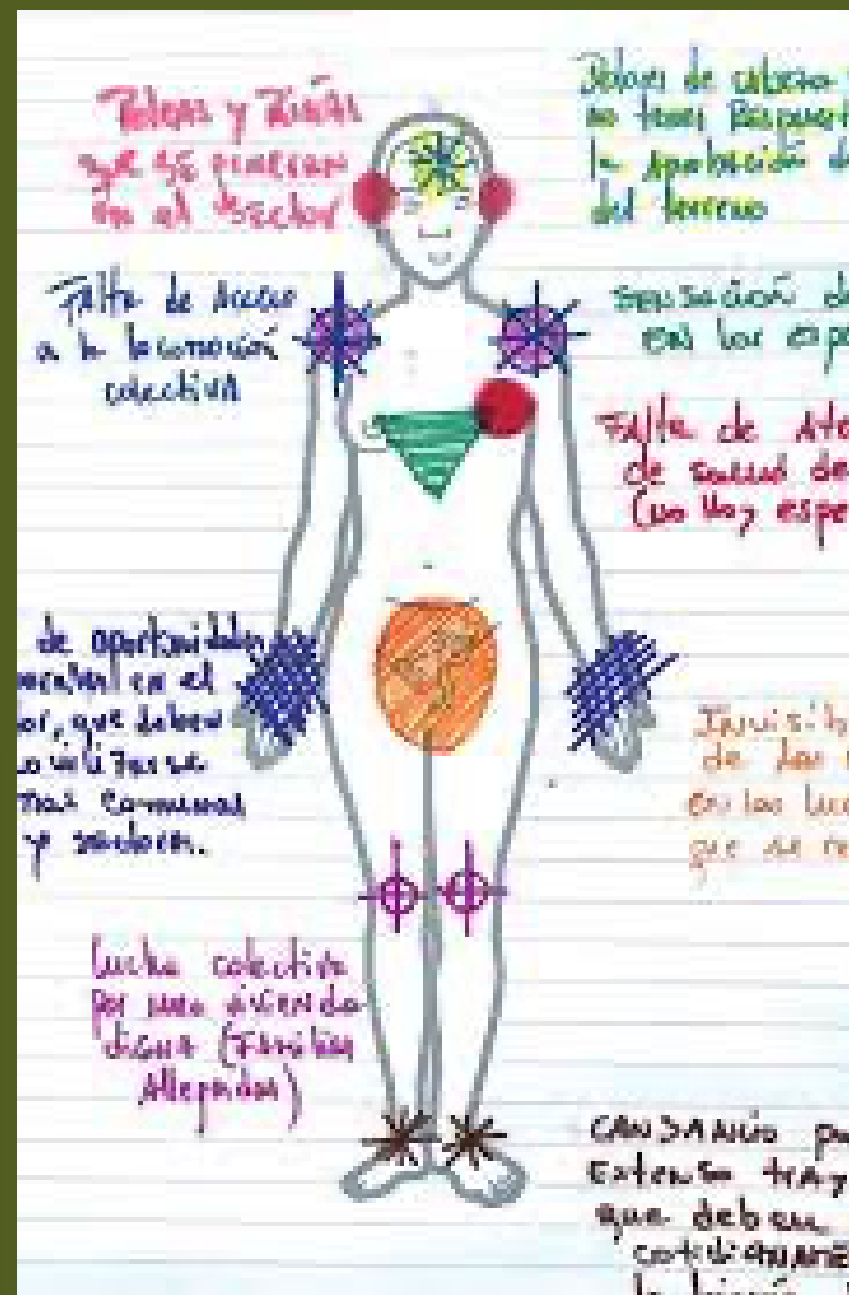 Peleas y Riñas
que se
en el sector
Dolores de cabeza
no tener Respuesta
la aprobación de
del terreno
Falta de Acceso
a la locomoción
colectiva
sensación de
en los
Falta de Ate
de salud de
(no Hay espe
de oportunidades
en el
or, que deben
comunas
y sectores.
Invisib
de las
en las luc
que se
Lucha colectiva
por una vivienda
digna (Familias
Allegadas)
CANSANCIO po
Extenso tray
que deben
cotidianame
la